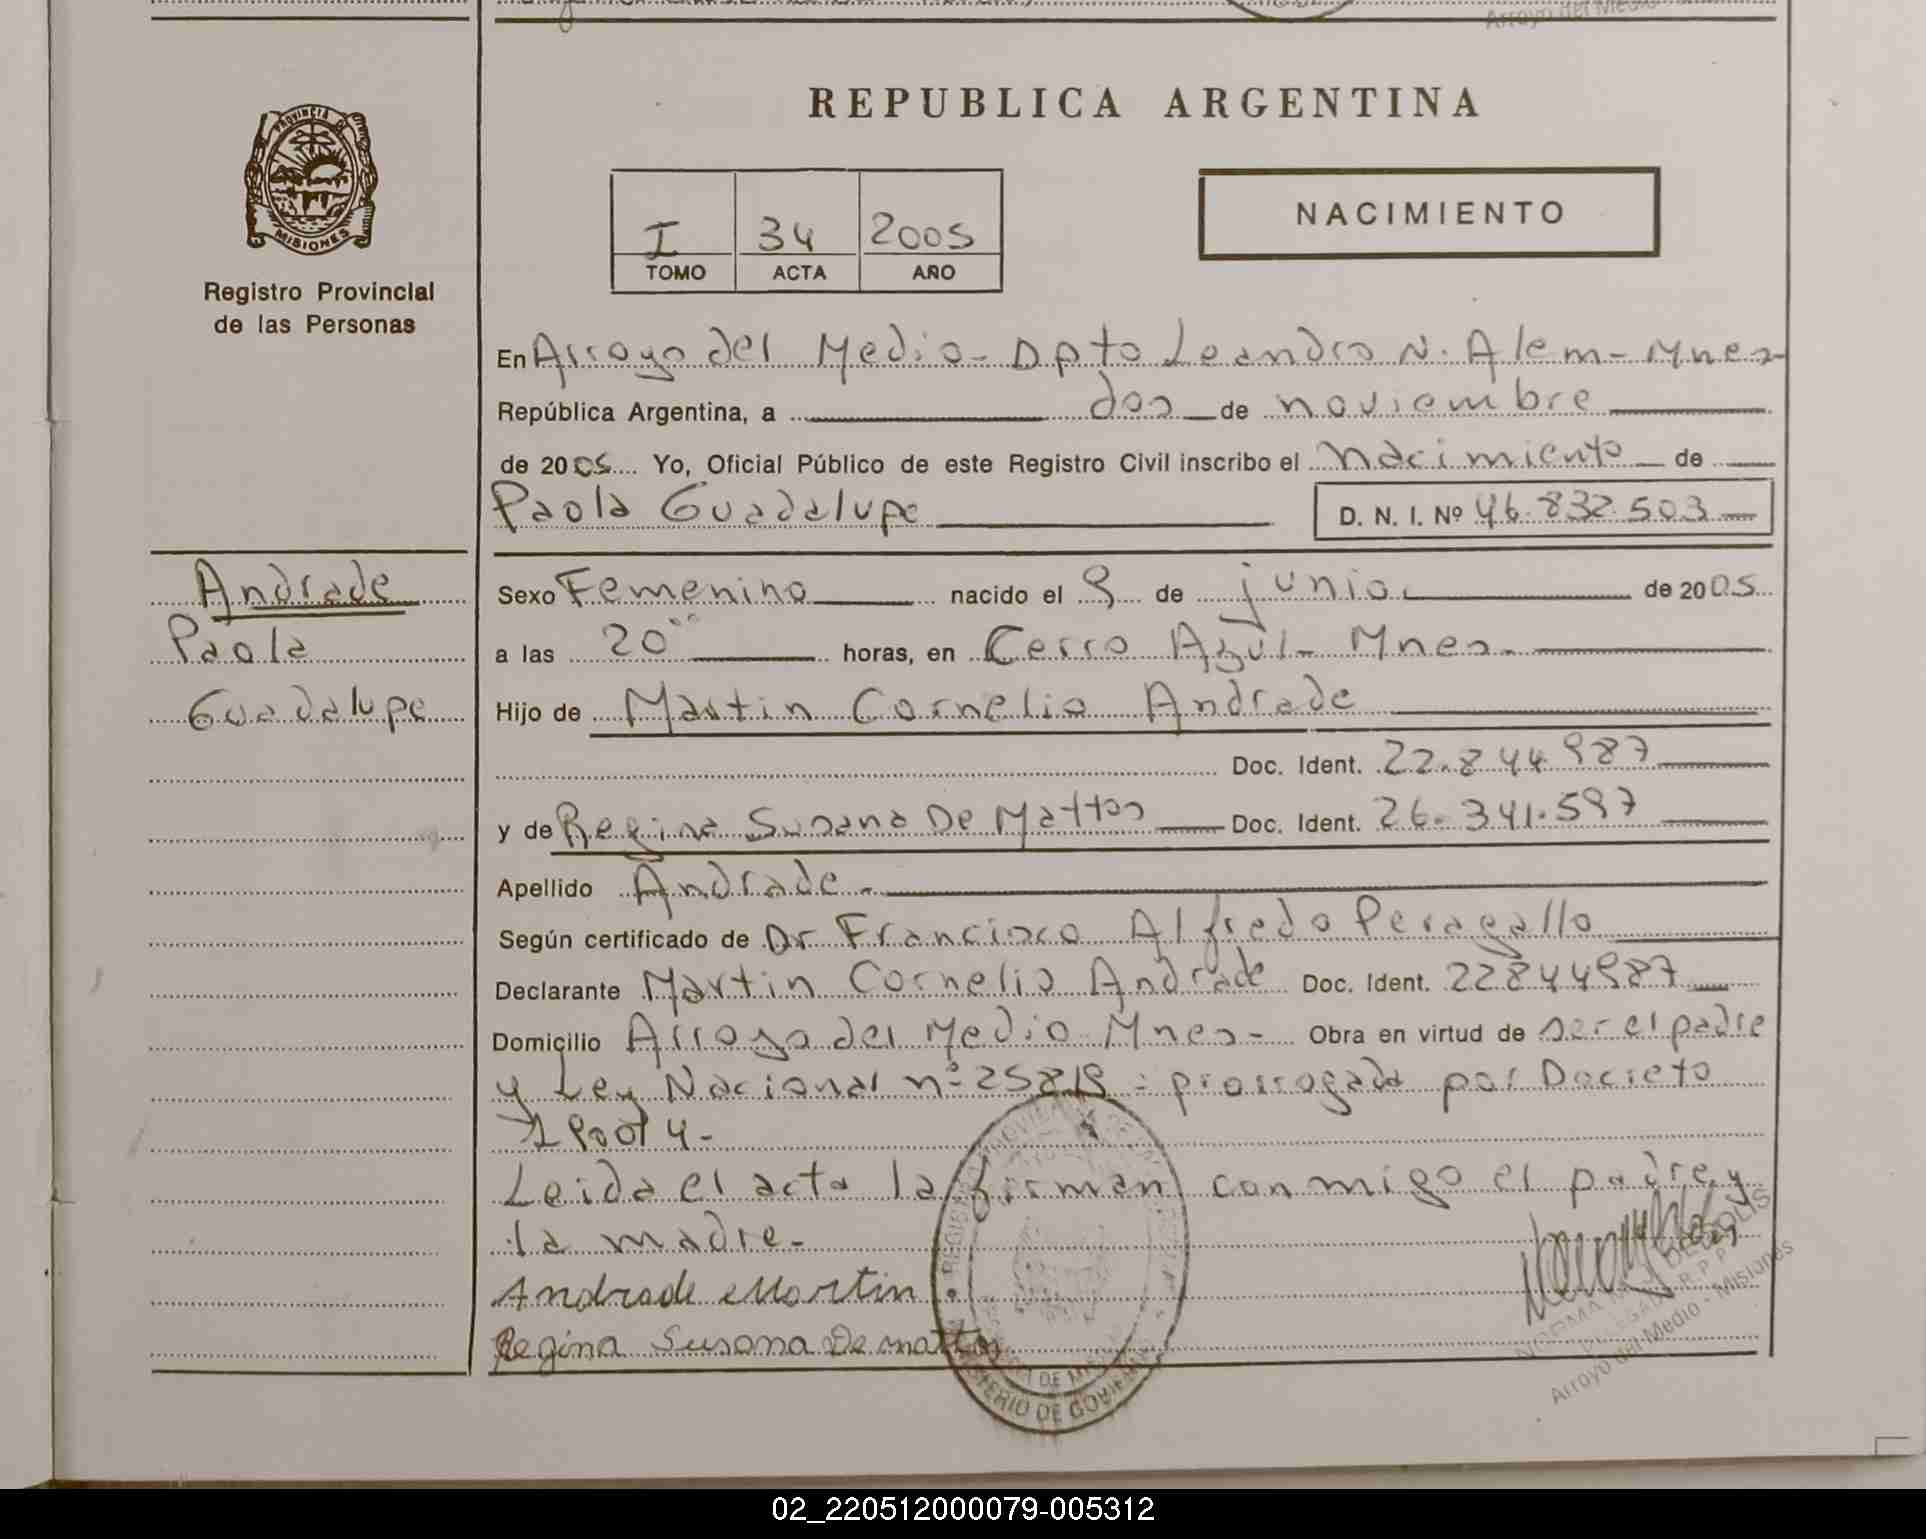 Arroyo del Medio
REPUBLICA ARGENTINA
PROVINCIA DE
MISIONES
Registro Provincial
de las Personas
I 34 2005
TOMO ACTA AÑO
NACIMIENTO
En Arroyo del Medio - Dpto Leandro N. Alem - Mnes -
República Argentina, a dos de noviembre
de 2005 Yo, Oficial Público de este Registro Civil inscribo el nacimiento de
Paola Guadalupe D. N. I. Nº 46.832.503
Andrade
Paola
Guadalupe
Sexo Femenino nacido el 9 de junio de 2005
a las 20 horas, en Cerro Azul - Mnes -
Hijo de Martin Cornelio Andrade
Doc. Ident. 22.844.987
y de Regina Susana De Mattos Doc. Ident. 26.341.597
Apellido Andrade.
Según certificado de Dr Francisco Alfredo Peragallo
Declarante Martin Cornelio Andrade Doc. Ident. 22844987
Domicilio Arroyo del Medio Mnes - Obra en virtud de ser el padre
y Ley Nacional nº 25819 - prorrogada por Decreto
Leida el acta la firman conmigo el padre y
la madre.-
Andrade Martin
Regina Susana De mattos
MINISTERIO DE GOBIERNO
Arroyo del Medio - Misiones
02_220512000079-005312